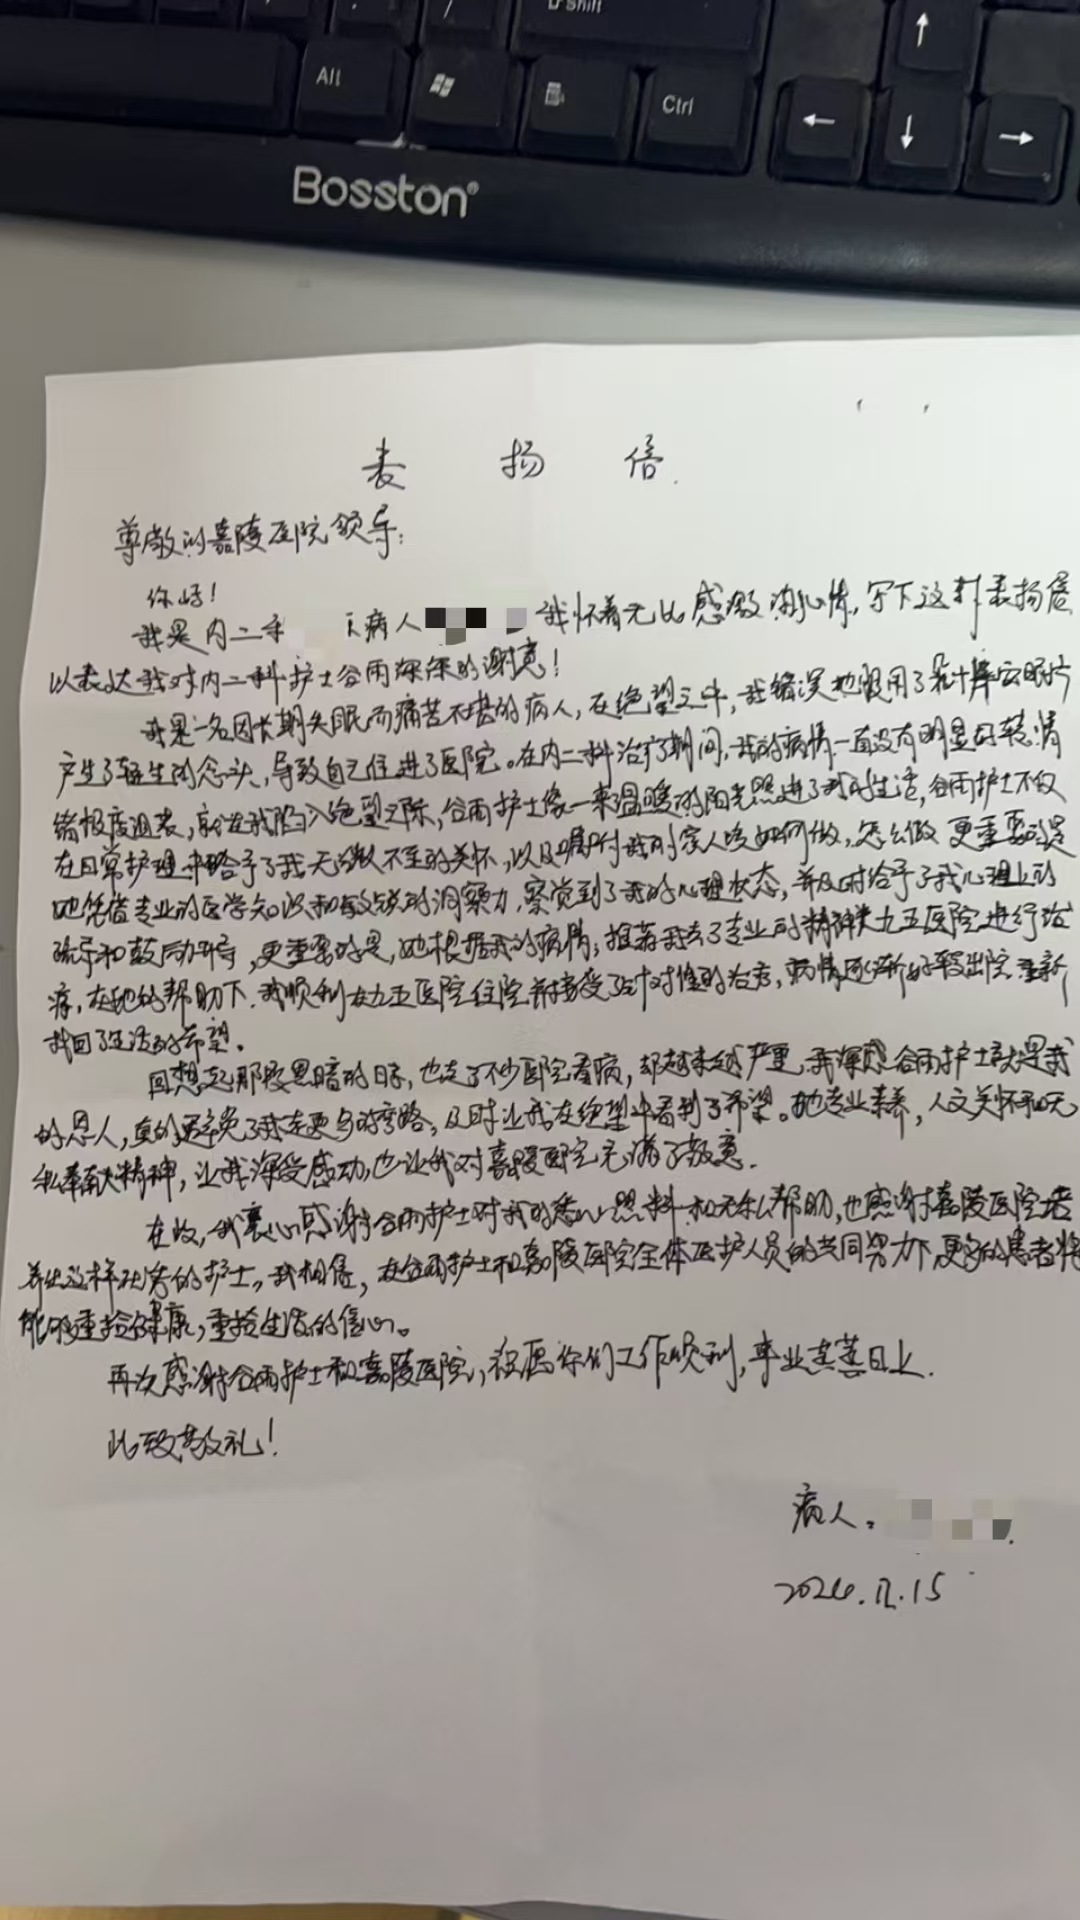 Shift
Alt
Ctrl
↑
←
↓
→
Bosston®
表扬信.
尊敬的嘉陵医院领导:
你好!
我是内二科 病人 我怀着无比感激的心情,写下这封表扬信
以表达我对内二科护士谷雨深深的谢意!
我是一名因长期失眠而痛苦不堪的病人,在绝望之中,我错误地服用了几十片安眠片
产生了轻生的念头,导致自己住进了医院。在内二科治疗期间,我的病情一直没有明显好转,情
绪极度沮丧,就在我陷入绝望之际,谷雨护士像一束温暖的阳光照进了我的生活,谷雨护士不仅
在日常护理中给予了我无微不至的关怀,以及嘱咐我的家人该如何做,怎么做 更重要的是
她凭借专业的医学知识和敏锐的洞察力,察觉到了我的心理状态,并及时给予了我心理上的
疏导和鼓励,更重要的是,她根据我的病情,推荐我去了专业的精神类九五医院进行治
疗,在她的帮助下,我顺利在九五医院住院并接受了针对性的治疗,病情逐渐好转出院,重新
找回了生活的希望。
回想起那段黑暗的日子,也走了不少医院看病,却越来越严重,我深感谷雨护士就是我
的恩人,真的避免了我走更多的弯路,及时让我在绝望中看到了希望。她专业素养,人文关怀和无
私奉献精神,让我深受感动,也让我对嘉陵医院充满了敬意.
在此,我衷心感谢谷雨护士对我的悉心照料和无私帮助,也感谢嘉陵医院培
养出这样优秀的护士,我相信,在谷雨护士和嘉陵医院全体医护人员的共同努力下,更多的患者将
能够重拾健康,重拾生活的信心。
再次感谢谷雨护士和嘉陵医院,祝愿你们工作顺利,事业蒸蒸日上.
此致敬礼!
病人:
2024.12.15